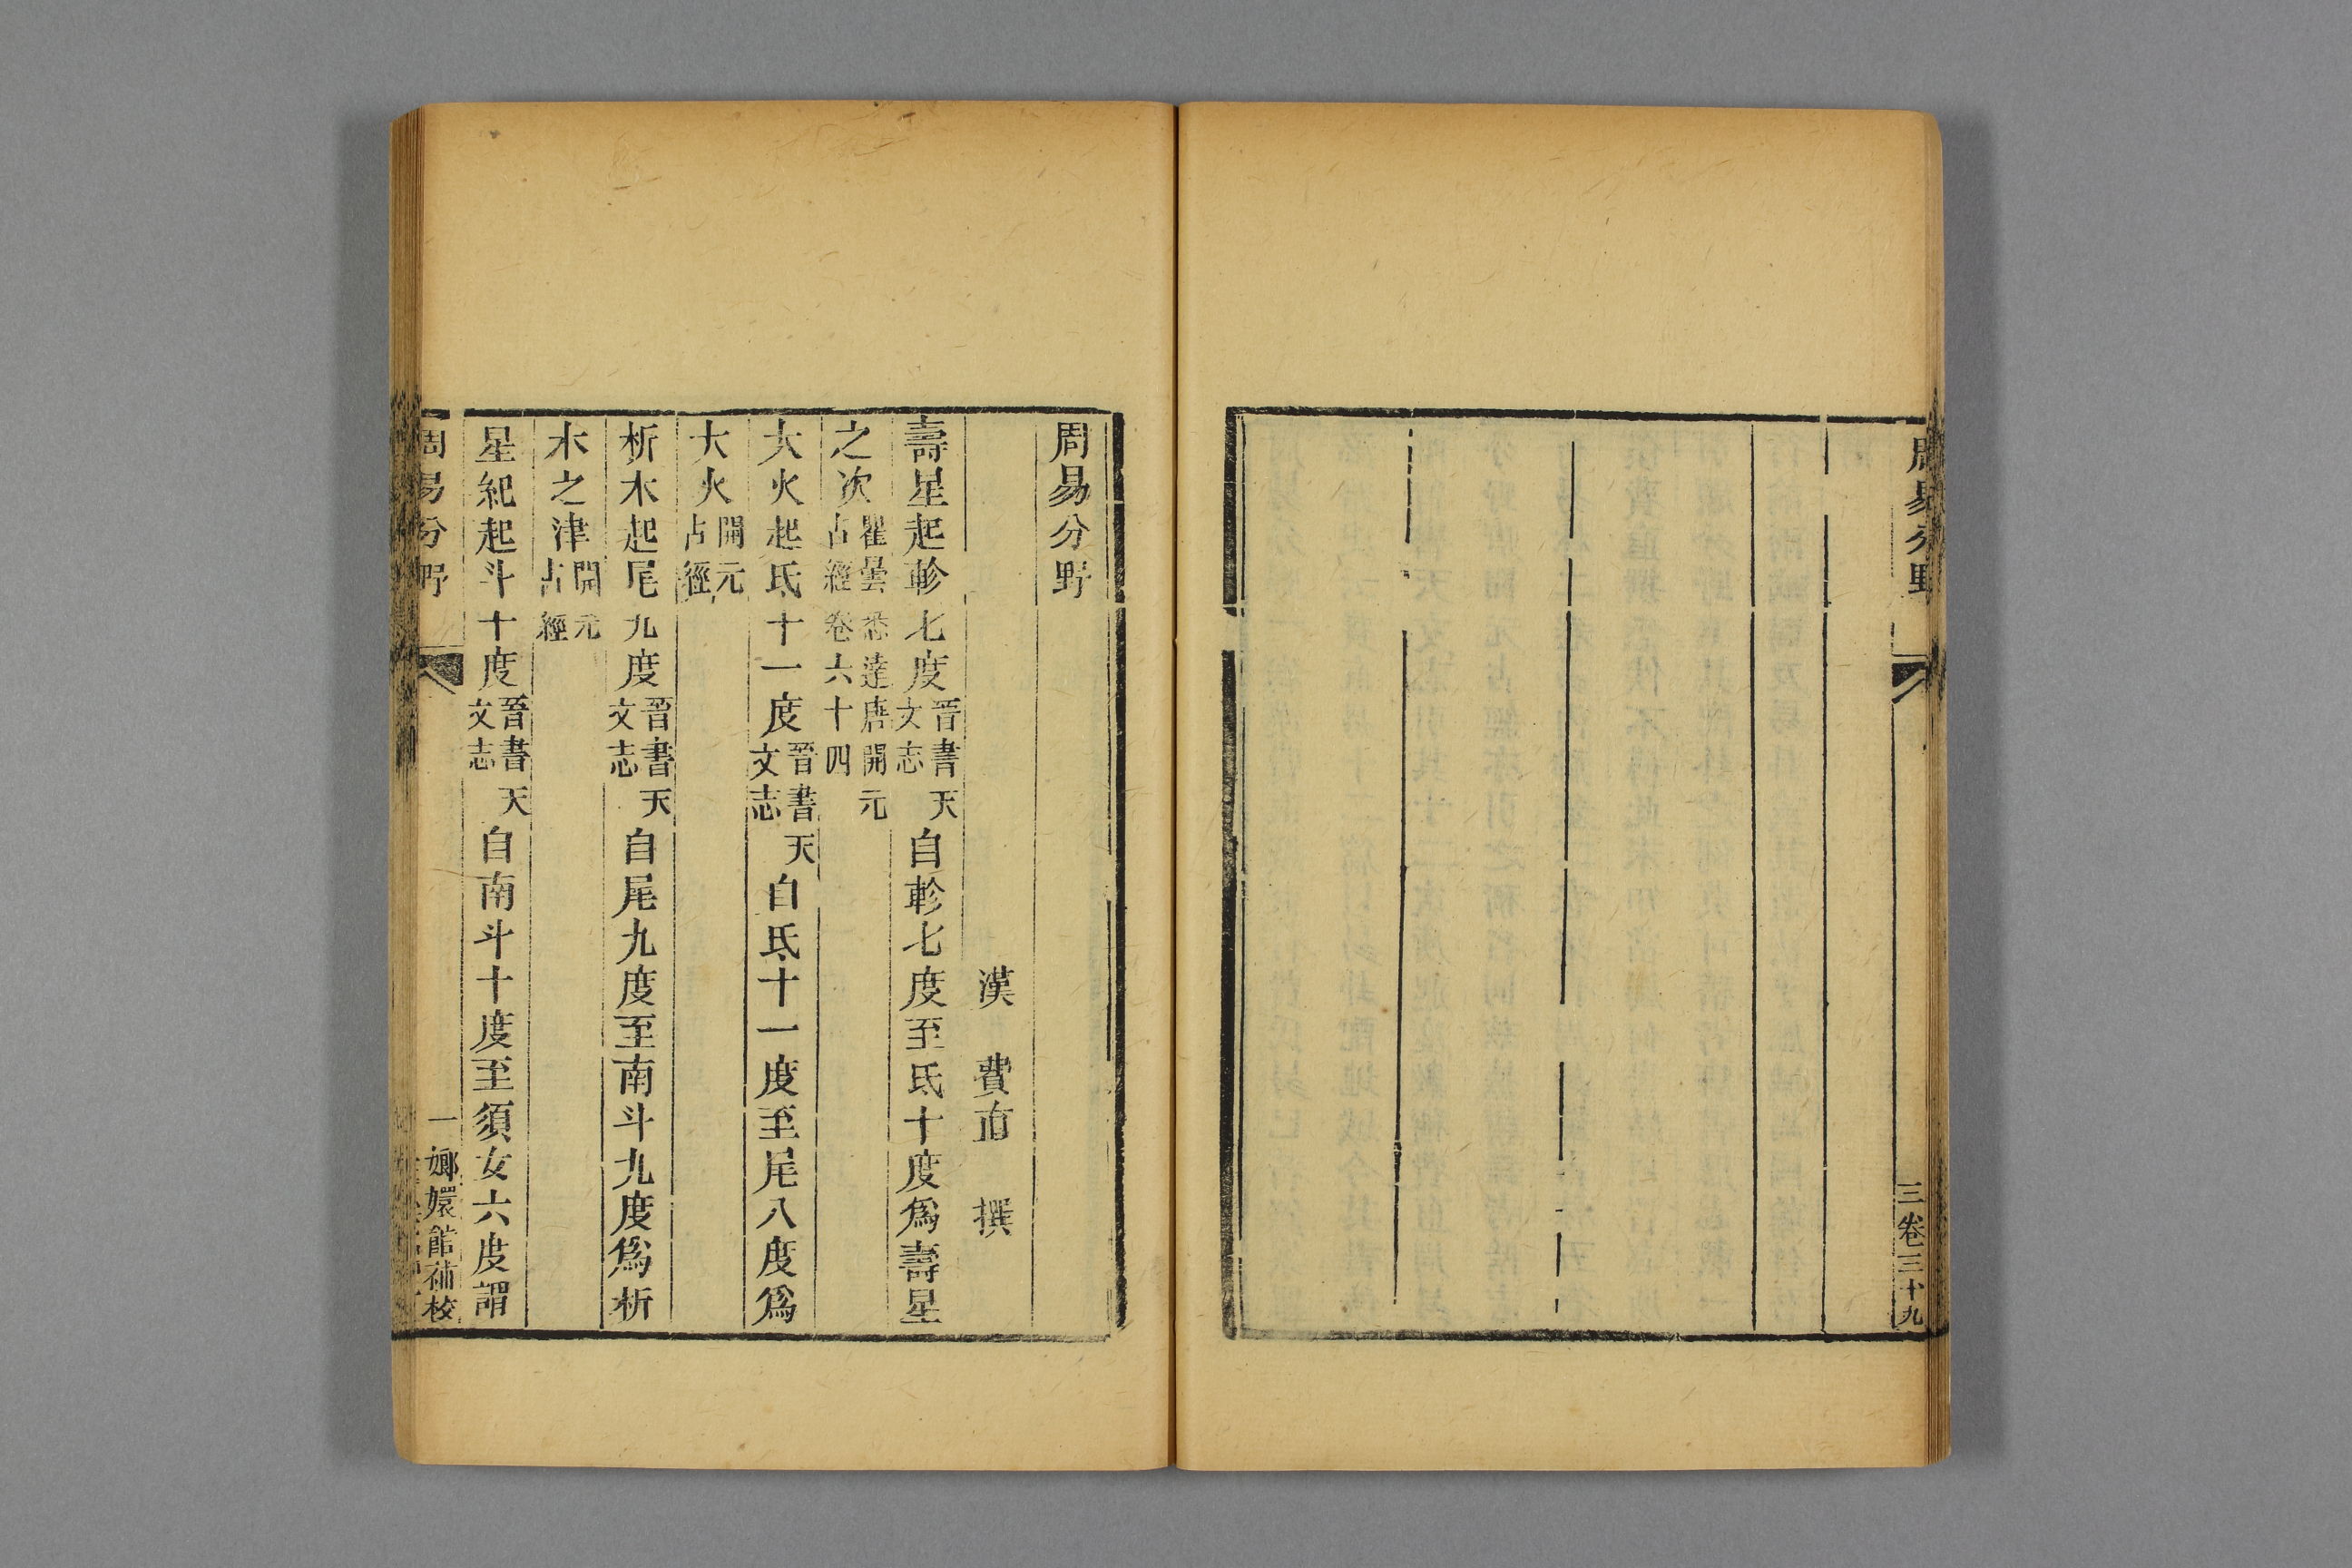 周易分野
三卷三十九
周易分野
漢　費直　撰
壽星起軫七度晉書天文志自軫七度至氐十度爲壽星
之次瞿曇悉達唐開元占經卷六十四
大火起氐十一度晉書天文志自氐十一度至尾八度爲
大火開元占經
析木起尾九度晉書天文志自尾九度至南斗九度爲析
木之津開元占經
星紀起斗十度晉書天文志自南斗十度至須女六度謂
周易分野
一嫏嬛館補校